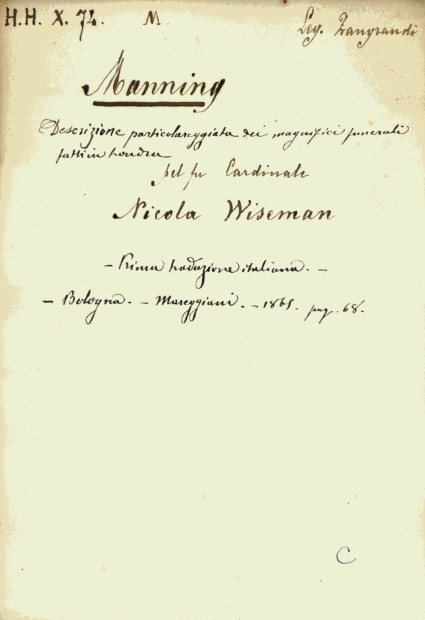 H.H. X. 72. M Leg. Zangrandi
Manning
Descrizione particolareggiata dei magnifici funerali
fatti in Londra
pel fu Cardinale
Nicola Wiseman
— Prima traduzione italiana. —
— Bologna. — Mareggiani. — 1865. pag. 68.
C